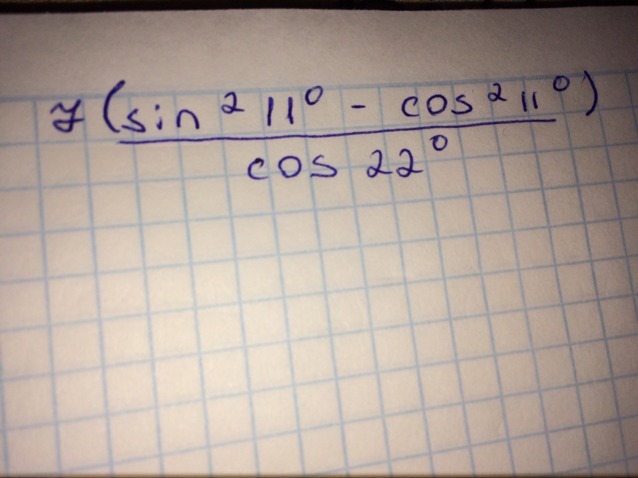 7 (sin² 11° - cos² 11°)
cos 22°